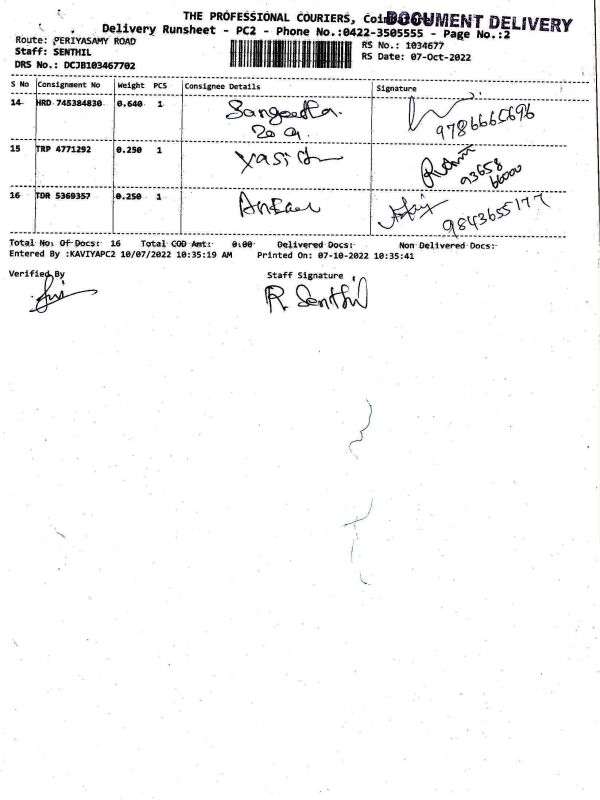 THE PROFESSIONAL COURIERS, Coimbatore
DOCUMENT DELIVERY
Delivery Runsheet - PC2 - Phone No.:0422-3505555 - Page No.:2
Route: PERIYASAMY ROAD
RS No.: 1034677
Staff: SENTHIL
RS Date: 07-Oct-2022
DRS No.: DCJB103467702
S No Consignment No Weight PCS Consignee Details Signature
14 HRD 745384830 0.640 1 Sangeetha. 9786665696
15 TRP 4771292 0.250 1 93658
66000
16 TDR 5369357 0.250 1 9843655177
Total No. Of Docs: 16 Total COD Amt: 0.00 Delivered Docs: Non Delivered Docs:
Entered By :KAVIYAPC2 10/07/2022 10:35:19 AM Printed On: 07-10-2022 10:35:41
Verified By Staff Signature
R. Senthil